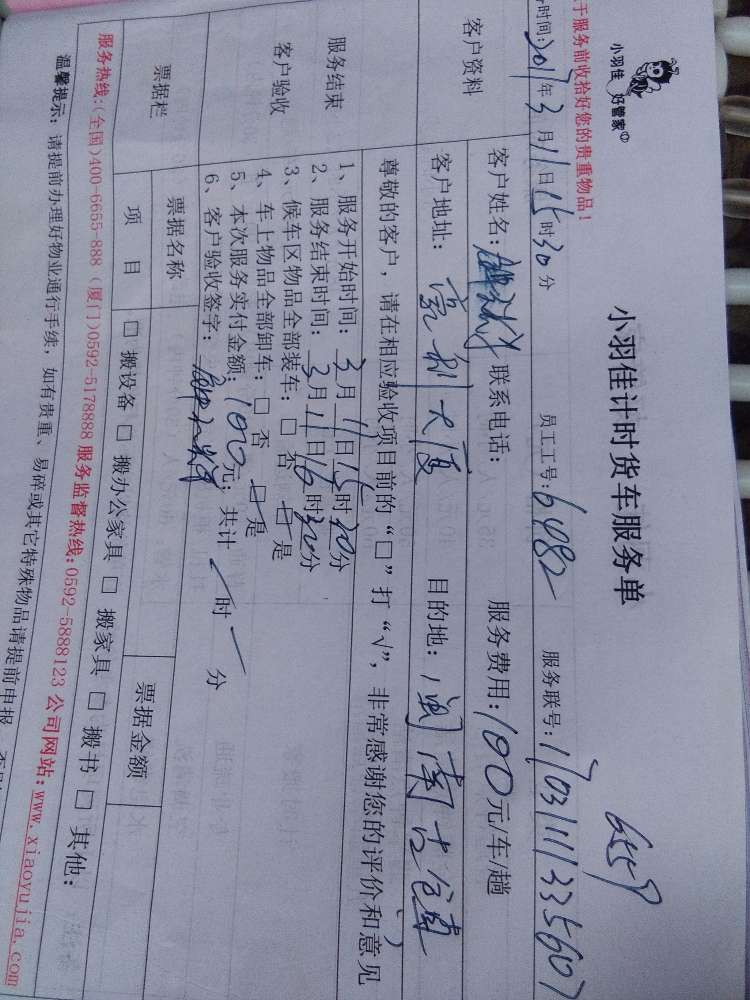 小羽佳 好管家
于服务前收拾好您的贵重物品！
小羽佳计时货车服务单
6559
时间:2017年3月11日15时30分 员工工号:6482 服务联号:170311133560
客户资料
客户姓名: 联系电话: 服务费用:100元/车/趟
客户地址: 豪利大厦 目的地: 闽南古仓库
尊敬的客户，请在相应验收项目前的“□”打“√”，非常感谢您的评价和意见
服务结束
客户验收
1、服务开始时间: 3月11日15时30分
2、服务结束时间: 3月11日16时30分
3、候车区物品全部装车: □否 □是
4、车上物品全部卸车: □否 □是
5、本次服务实付金额: 100元; 共计 / 时 / 分
6、客户验收签字:
票据栏
票据名称 票据金额
项目 □搬设备 □搬办公家具 □搬家具 □搬书 □其他:
服务热线:(全国)400-6655-888 (厦门)0592-5178888 服务监督热线:0592-5888123 公司网站:www.xiaoyujia.com
温馨提示: 请提前办理好物业通行手续，如有贵重、易碎或其它特殊物品请提前申报，否则